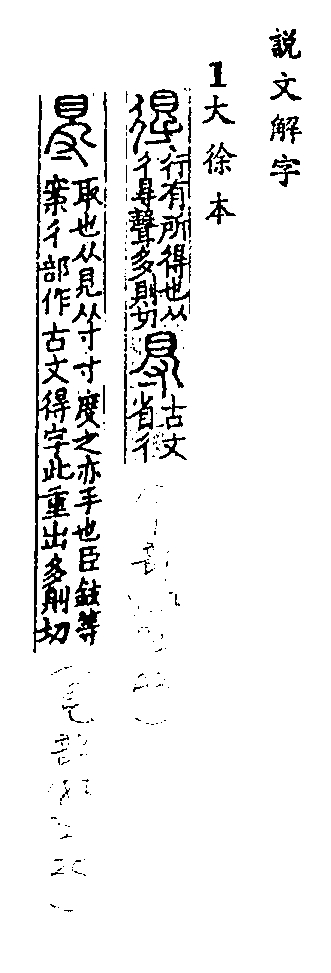 説文解字
1大徐本
得
行有所得也从
彳㝵聲多則切
㝵
古文
省彳
㝵
取也从見从寸寸度之亦手也臣鉉等
案彳部作古文得字此重出多則切